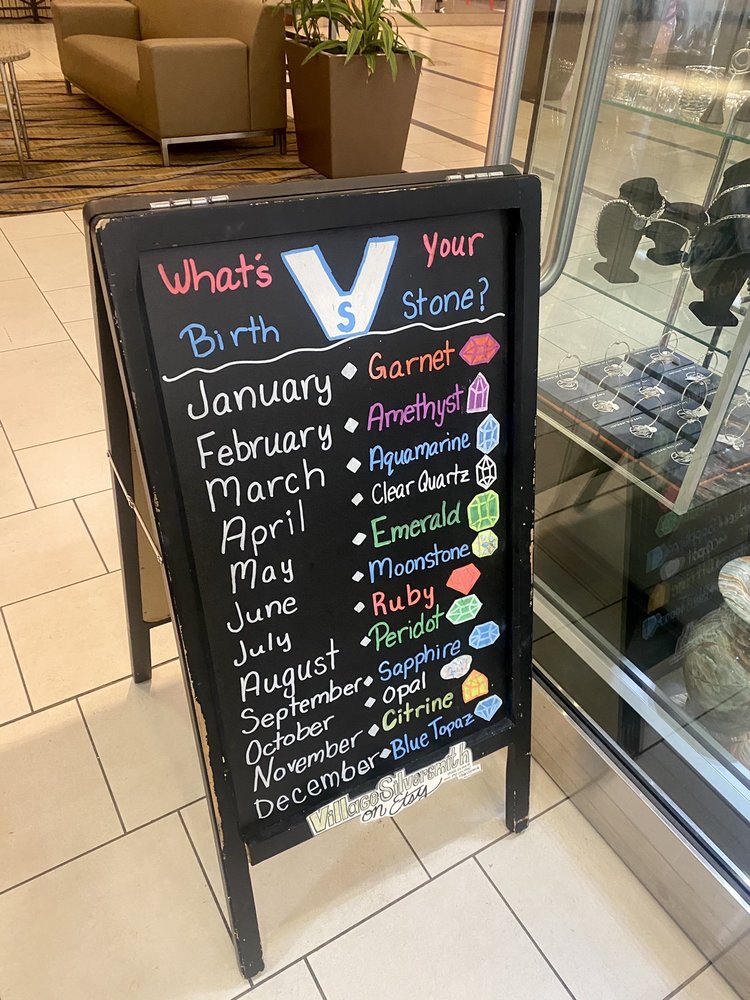 What's Your
VS
Birth Stone?
January ◆ Garnet
February ◆ Amethyst
March ◆ Aquamarine
April ◆ Clear Quartz
May ◆ Emerald
June ◆ Moonstone
July ◆ Ruby
August ◆ Peridot
September ◆ Sapphire
October ◆ Opal
November ◆ Citrine
December ◆ Blue Topaz
Village Silversmith
on Etsy